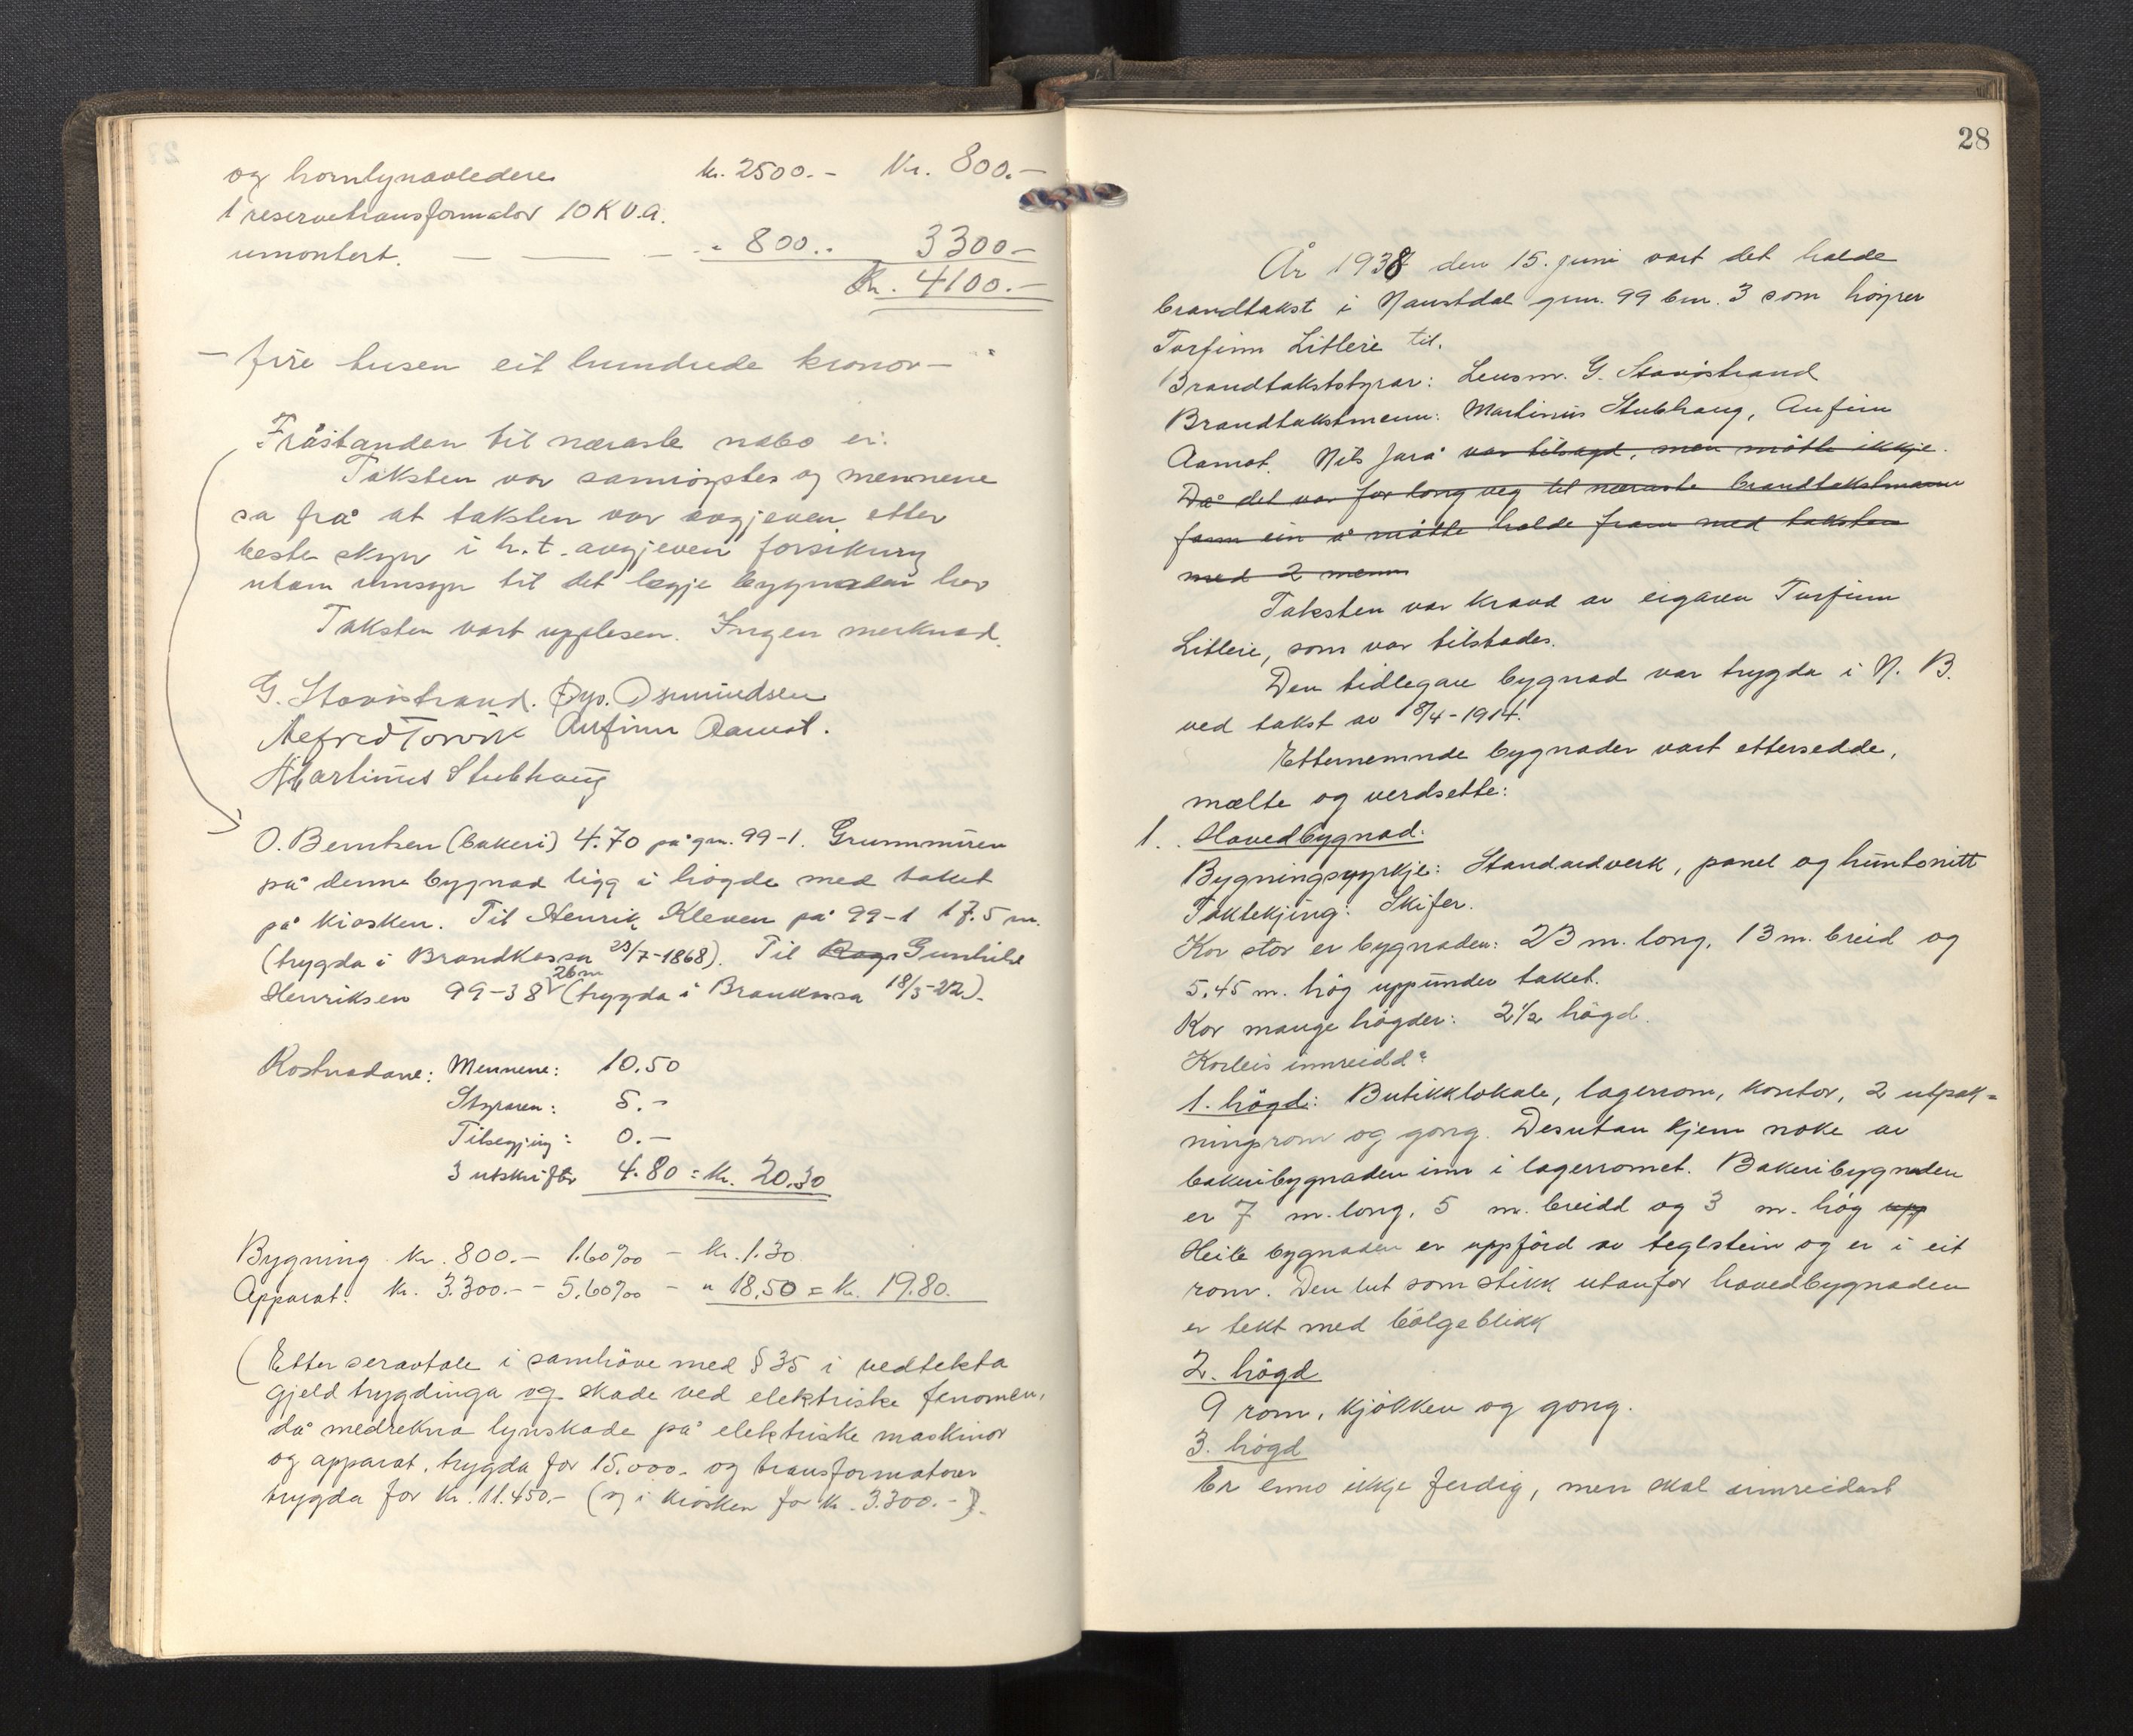 og hornlynavledere kr. 2500.- Kr. 800.-
1 reservetransformator 10 K V.a.
umontert. — — — " 800.- 3300-
Kr. 4100.-
- fire tusen eit hundrede kronor -
Fråstanden til næraste nabo er:
Taksten var samrøystes og mennene
sa frå at taksten var avgjeven etter
beste skyn i h.t. avgjeven forsikring
utan umsyn til det lægje bygnaden hev
Taksten vart upplesen. Ingen merknad.
G. Stavøstrand. Osmundsen
Alfred Torvik Anfinn Aamot.
Martinus Stubhaug
O. Berntsen (bakeri) 4.70 på gn. 99-1. Grunnmuren
på denne bygnad ligg i høgde med taket
på kiosken. Til Henrik Kleven på 99-1 17.5 m.
(trygda i Brandkassa 23/7-1868). Til Gunhild
26 m
Henriksen 99-38 (trygda i Brankassa 18/3-22).
Kostnadane: Mennene: 10.50
Styraren: 5.-
Tilsegjing: 0.-
3 utskrifter 4.80 = Kr. 20.30
Bygning kr. 800.- 1.60‰ - Kr. 1.30
Apparat: kr. 3.300.- - 5.60‰ - " 18,50 = Kr. 19.80.
(Etter seravtale i samhøve med § 35 i vedtekta
gjeld trygdinga og skade ved elektriske fenomen,
då medrekna lynskade på elektriske maskinor
og apparat, trygda for 15.000.- og transformatorer
trygda for kr. 11.450.- (og i kiosken for kr. 3.300.-).
28
År 1938 den 15. juni vart det halde
brandtakst i Naustdal gnr. 99 bnr. 3 som høyrer
Torfinn Litlere til.
Brandtakststyrar: Lensm. G. Stavøstrand
Brandtakstmenn: Martinus Stubhaug, Anfinn
Aamot. Nils Jarå var tilsagd, men møtte ikkje.
Då det var for long veg til næraste brandtakstmann
fann ein å måtte halde fram med taksten
med 2 menn
Taksten var kravd av eigaren Torfinn
Litleie, som var tilstades.
Den tidlegare bygnad var trygda i N. B.
ved takst av 18/4-1914.
Etternemnde bygnader vart ettersedde,
mælte og verdsette:
1. Hovedbygnad:
Bygningsyrkje: Standardverk, panel og huntonitt
Taktekjing: Skifer.
Kor stor er bygnaden: 23 m. long, 13 m. breid og
5.45 m. høg uppunder taket.
Kor mange høgder: 2 1/2 høgd.
Korleis innreidd?
1. høgd: Butikklokale, lagerrom, kontor, 2 utpak=
ningsrom og gong. Desutan kjem noke av
bakeribygnaden inn i lagerromet. Bakeribygnaden
er 7 m. long, 5 m. breidd og 3 m. høg upp
Heile bygnaden er uppførd av teglstein og er i eit
rom. Den lut som stikk utanfor hovedbygnaden
er tekt med bølgeblikk
2. høgd
9 rom, kjøkken og gong.
3. høgd
Er enno ikkje ferdig, men skal innreidast